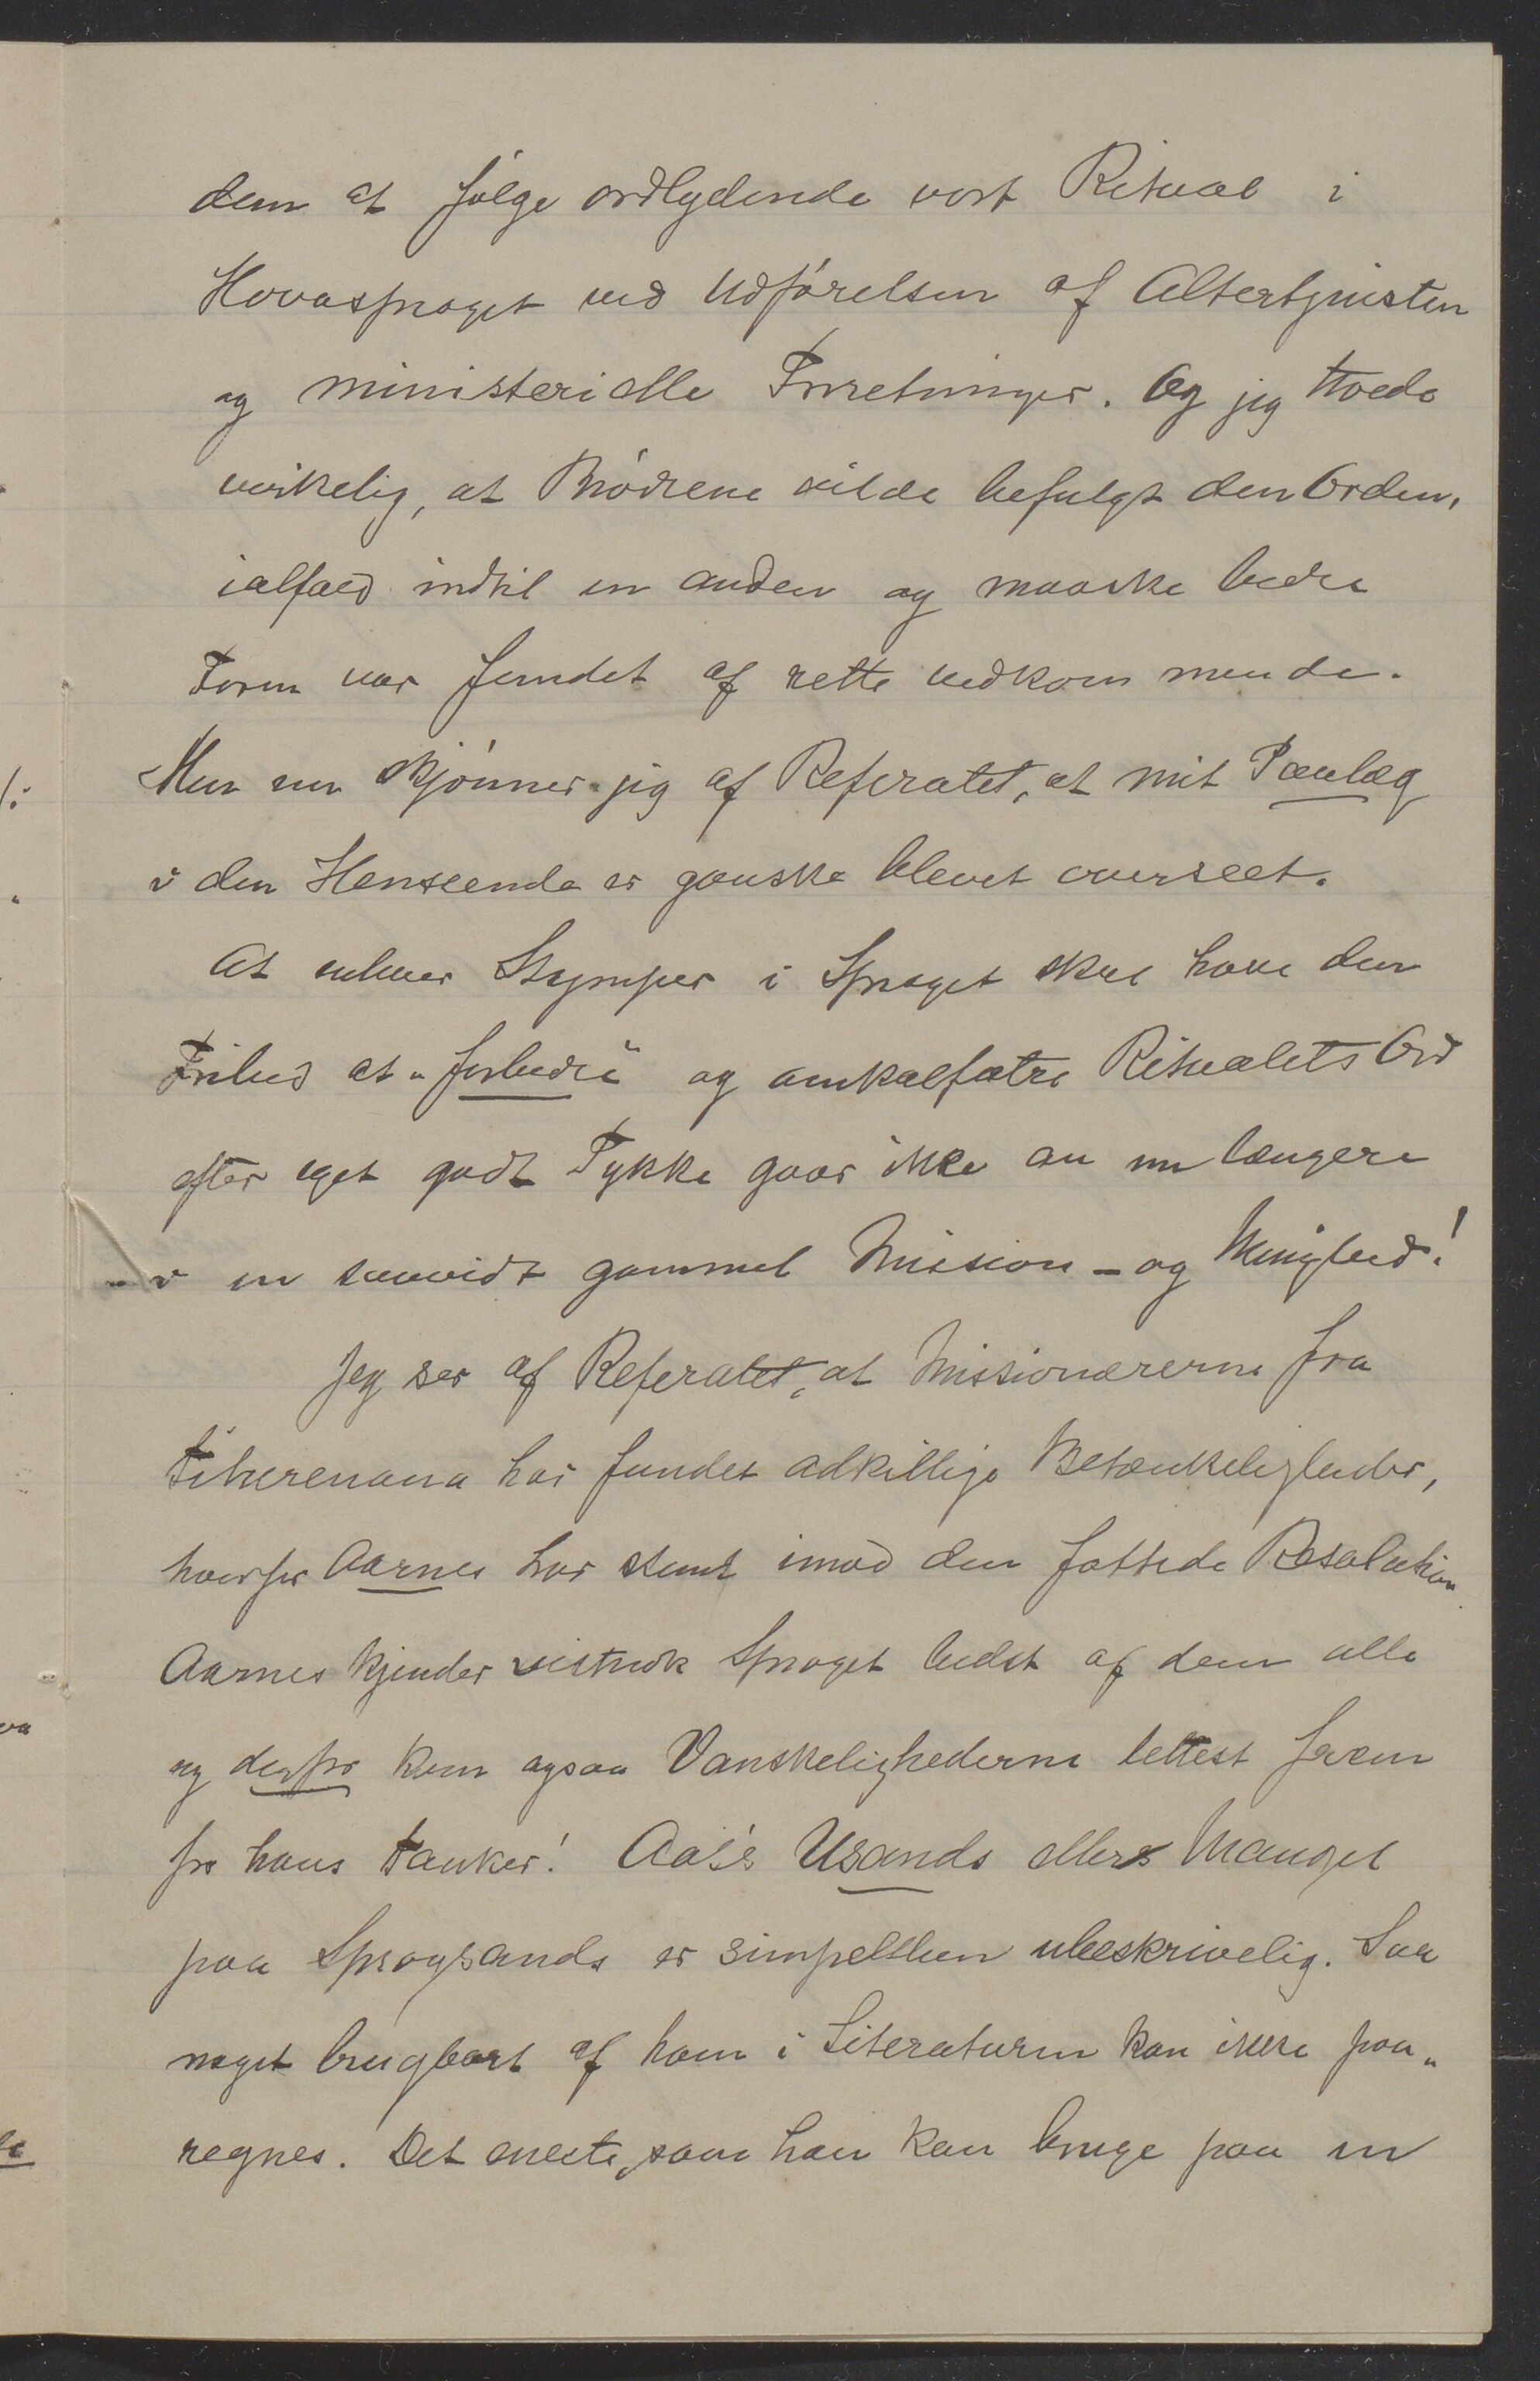 dem at følge ordlydende vort Ritual i
Hovasproget ved Udførelsen af Altertjenesten
og ministerielle Forretninger. Og jeg troede
virkelig, at Brødrene vilde befulgt den Orden,
ialfald indtil en anden og maaske bedre
Form var fundet af rette vedkommende.
Men nu skjønner jeg af Referatet, at mit Paalæg
i den Henseende er ganske blevet overseet.
At enhver Stymper i Sproget skal have den
Frihed at "forbedre" og omkalfatre Ritualets Ord
efter eget godt Tykke gaar ikke an nu længere
i en saavidt gammel Mission – og Menighed!
Jeg ser af Referatet, at Missionærerne fra
Fiherenana har fundet adkillige Betænkeligheder,
hvorfor Aarnes har stemt imod den fattede Resolution.
Aarnes kjender vistnok Sproget bedst af dem alle
og derfor kom ogsaa Vanskelighederne lettest frem
for hans Tanker! Aas's Usands ellers Mangel
paa Sprogsands er simpelthen ubeskrivelig. Saa
noget brugbart af ham i Literaturen kan ikke paa-
regnes. Det eneste, som han kan bruge paa en